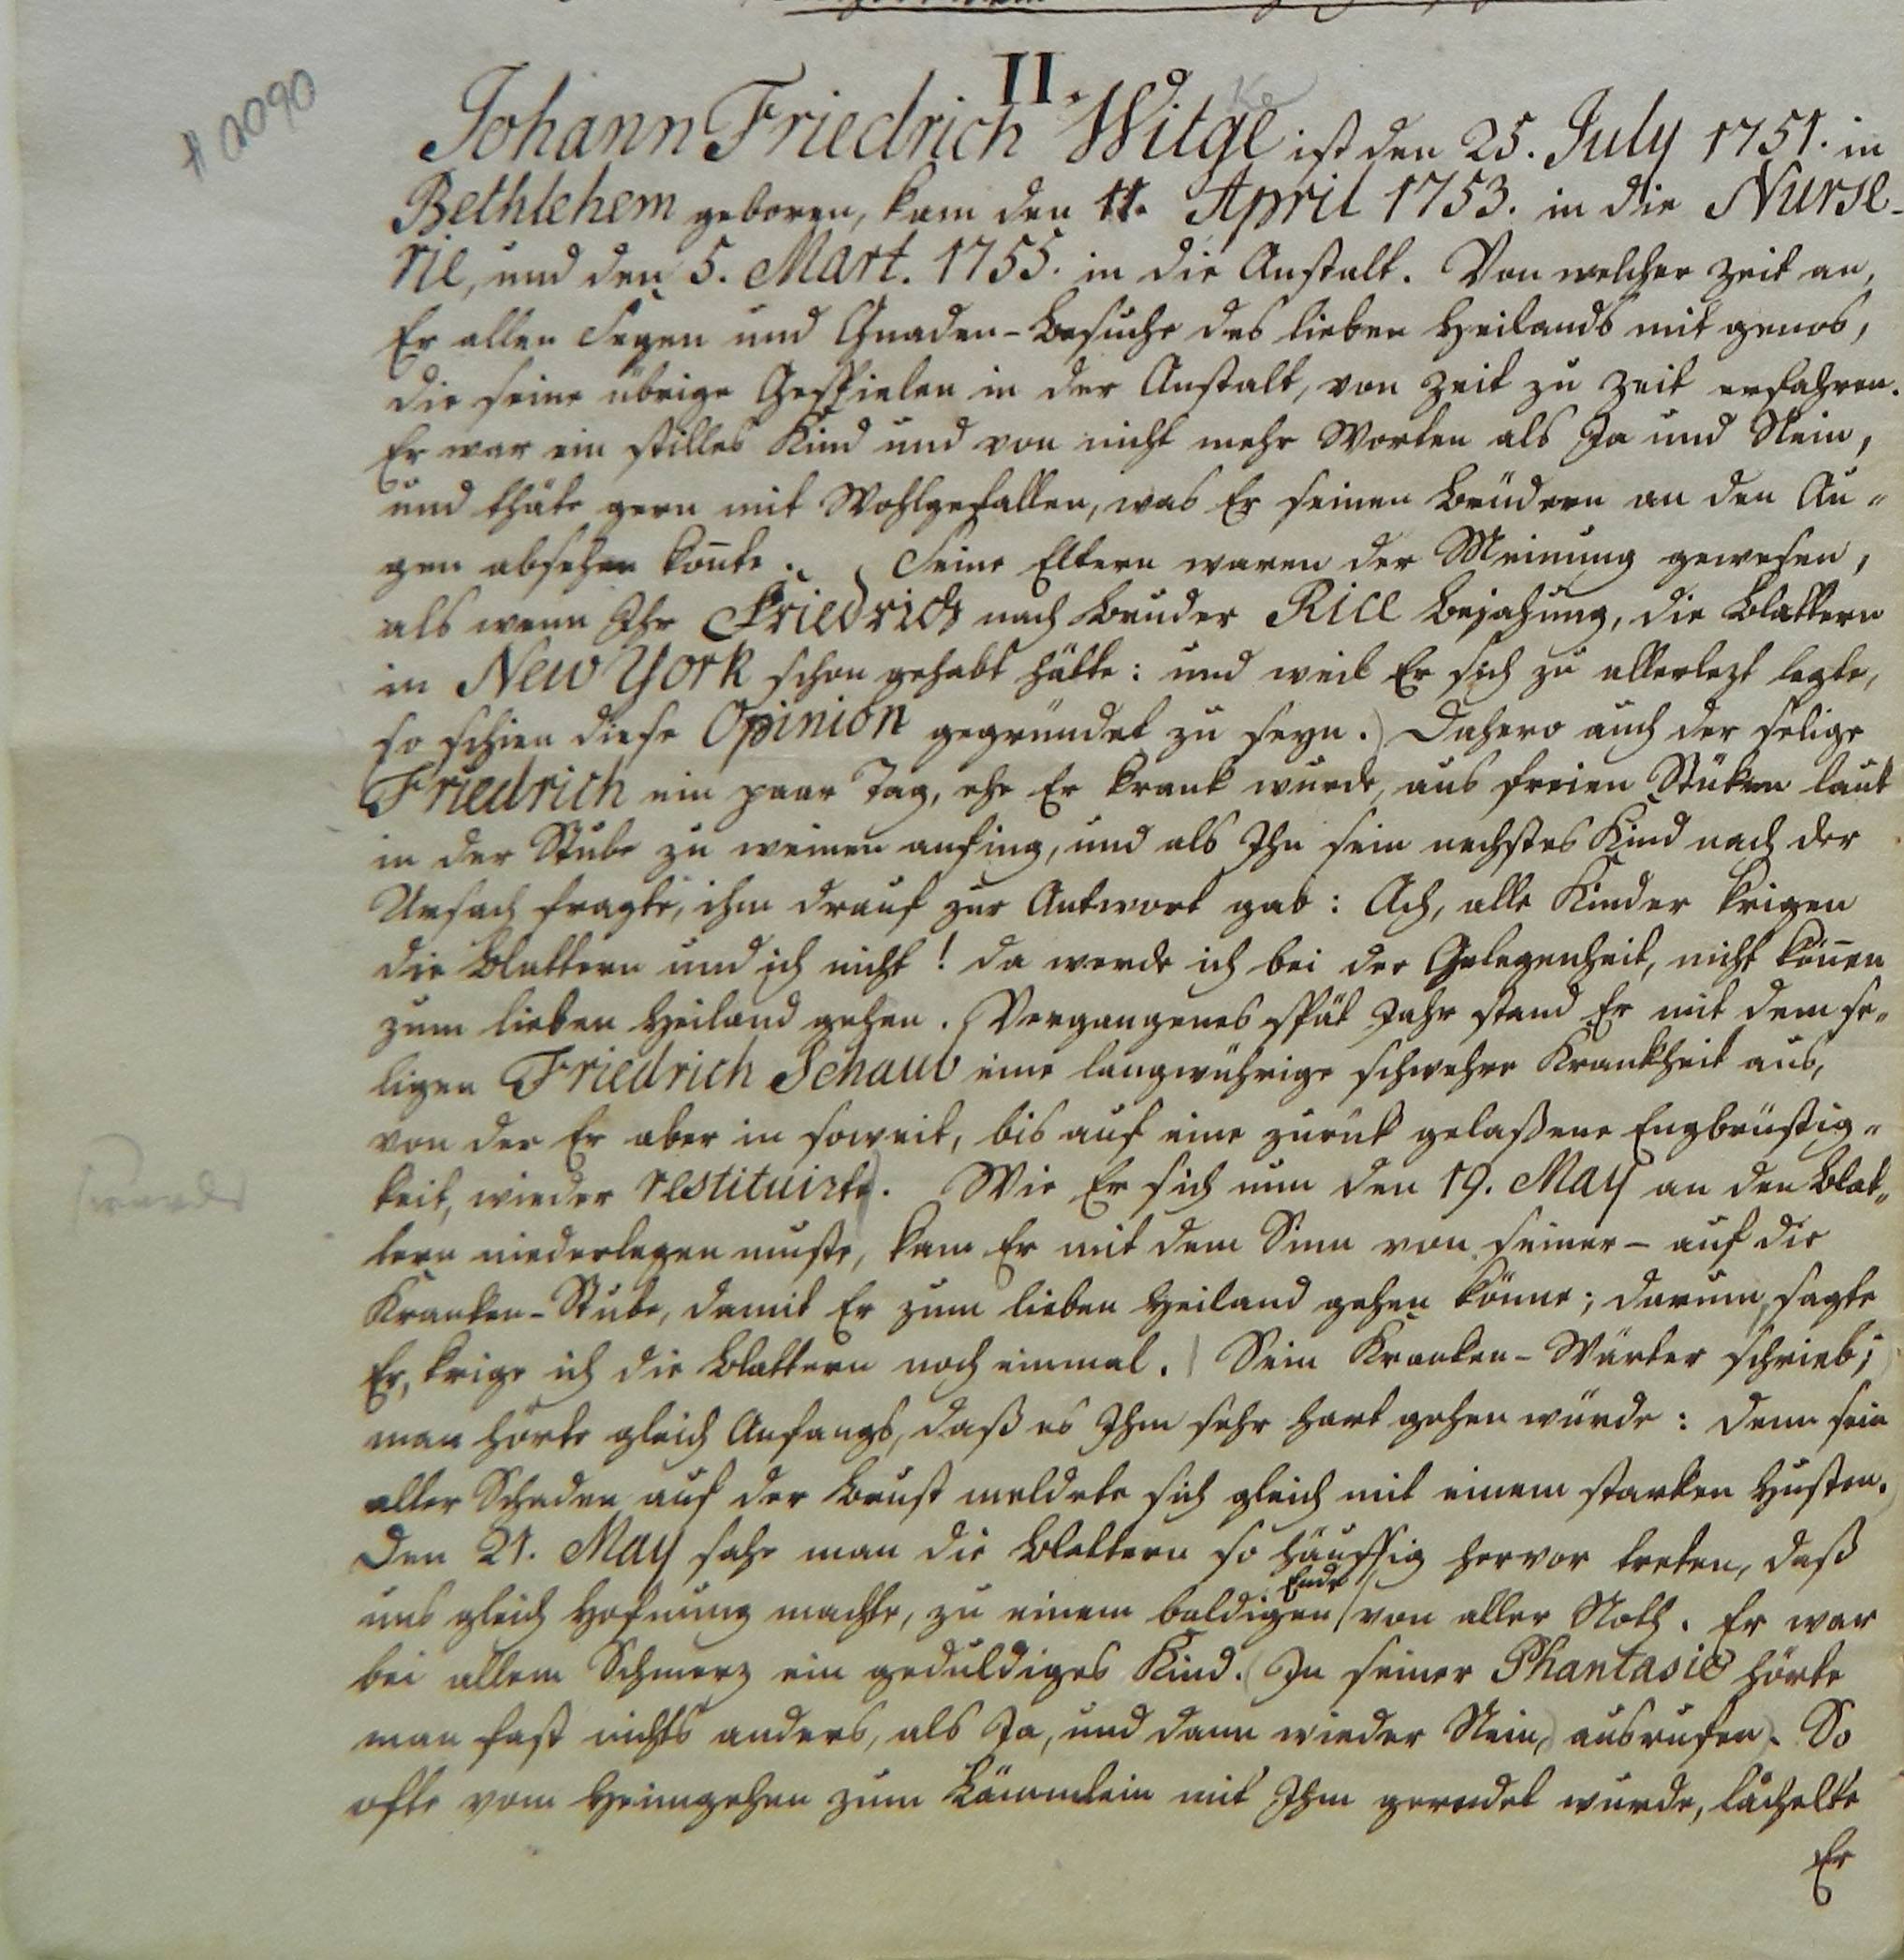 #0090
II.
Johann Friedrich Witge ist den 25. July 1751. in
ke
Bethlehem geboren, kam den 11. April 1753. in die Nurse-
rie, und den 5. Mart. 1755. in die Anstalt. Von welcher Zeit an,
Er allen Segen und Gnaden-Besuche des lieben Heilands mit genos,
die seine übrige Gespielen in der Anstalt, von Zeit zu Zeit erfahren.
Er war ein stilles Kind und von nicht mehr Worten als Ja und Nein,
und thäte gern mit Wohlgefallen, was Er seinen Brüdern an den Au-
gen absehen kon̄te. (Seine Eltern waren der Meinung gewesen,
als wenn Ihr Friedrich nach Bruder Rice Bejahung, die Blattern
in New York schon gehabt hätte: und weil Er sich zu allerlezt legte,
so schien diese Opinion gegründet zu seyn.) Dahero auch der selige
Friedrich ein paar Tag, ehe Er krank wurde, aus freien Stüken laut
in der Stube zu weinen anfing, und als Ihn sein nechstes Kind nach der
Ursach fragte, ihm drauf zur Antwort gab: Ach, alle Kinder krigen
die Blattern und ich nicht! da werde ich bei der Gelegenheit, nicht kön̄en
zum lieben Heiland gehen. (Vergangenes spät Jahr stand Er mit dem se-
ligen Friedrich Schaub eine langwührige schwehre Krankheit aus,
von der Er aber in soweit, bis auf eine zurük gelaßene Engbrüstig-
keit, wieder restituirte). Wie Er sich nun den 19. May an den Blat-
tern niederlegen muste, kam Er mit dem Sinn von seiner - auf die
Kranken-Stube, damit Er zum lieben Heiland gehen könne; darum, sagte
Er, krige ich die Blattern noch einmal. (Sein Kranken-Wärter schrieb;
man hörte gleich Anfangs, daß es Ihm sehr hart gehen würde: denn sein
alter Schaden auf der Brust meldete sich gleich mit einem starken Husten.)
Den 21. May sahe man die Blattern so häuffig hervor treten, daß
Ende
uns gleich Hofnung machte, zu einem baldigen von aller Noth. Er war
bei allem Schmerz ein geduldiges Kind. (In seiner Phantasie hörte
man fast nichts anders, als Ja, und dann wieder Nein,) ausrufen). So
ofte vom Heimgehen zum Lämmlein mit Ihm geredet wurde, lächelte
Er